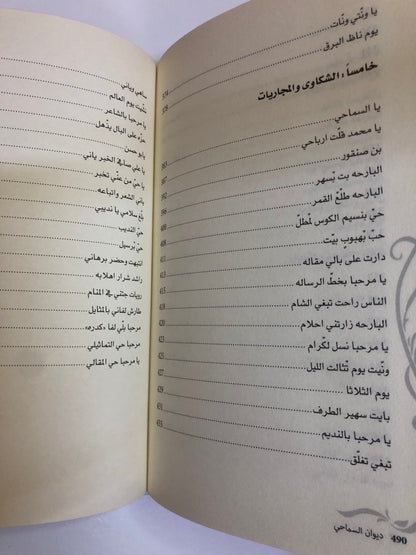 يا ونّتي ونّات
يوم ناظ البرق
خامساً: الشكاوى والمجاريات
يا السماحي
يا محمد قلّت ارباحي
بن صنقور
البارحه بت بْسهر
البارحه طلّع القمر
حيّ بنسيم الكوس لمْطلّ
حبّ بْهبوب بيّت
دارت على بالي مقاله
يا مرحبا بخطّ الرساله
الناس راحت تبغي الشام
البارحه زارتني احلام
يا مرحبا نسل لكْرام
ونّيت يوم تْثالت الليل
يوم الثلاثا
بايت سهير الطرف
يا مرحبا بالنديم
تبغي تغلّق
490 ديوان السماحي
ساهي وباني
ونّيت يوم العالم
يا مرحبا بالشاعر
حزّه على البال يذْهل
يابو حسن
يا علي صافي الخبر ياني
يا حيّ من عنّي تخبر
ياني الشعر واتباعه
بلّغ سلامي يا نديبي
حيّ النديب
حيّ برسيل
انتبهت وحضر برهاني
راشد شرار اهلا به
رويات جتني في المنام
طارش لفاني بالمثايل
مرحبا بلّي لفا «كدره»
يا مرحبا حي التماثيلي
يا مرحبا حي المقالي